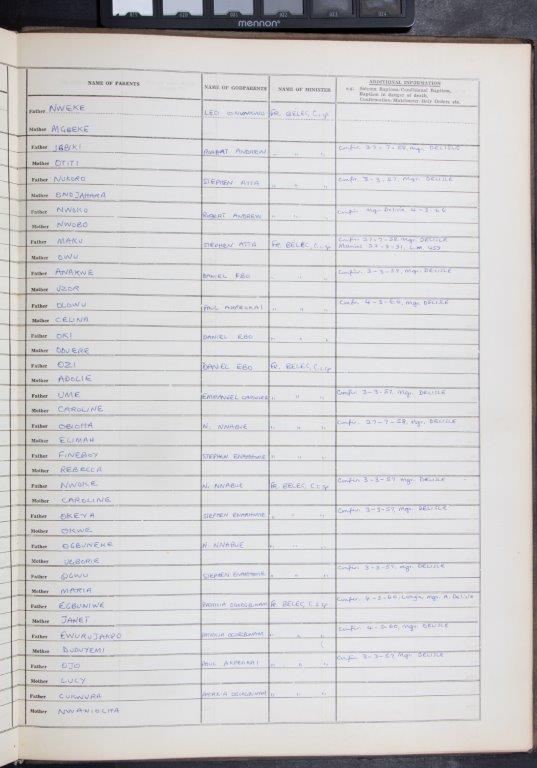 019 020 021 022 023 024
mennon
NAME OF PARENTS NAME OF GODPARENTS NAME OF MINISTER ADDITIONAL INFORMATION
e.g. Solemn Baptism/Conditional Baptism,
Baptism in danger of death,
Confirmation/Matrimony/Holy Orders etc.
Father NWEKE LEO Fr. BELEC, C.s.sp
Mother MGBEKE
Father IGBIKI ROBERT ANDREW " " " Confir. 27-7-58, Mgr. DELISLE
Mother OTITI
Father NUKORO STEPHEN ATTA " " " Confir. 3-3-57, Mgr. DELISLE
Mother
Father NWOKO ROBERT ANDREW " " Confir. Mgr. Delisle 4-3-60
Mother NWOBO
Father MAKU STEPHEN ATTA Fr. BELEC, C.s.sp Confir. 27-7-58, Mgr. DELISLE
Mother OWU
Father ANAKWE DANIEL EBO " " " Confir. 3-3-57, Mgr. DELISLE
Mother UZOR
Father OLOWU PAUL " " " Confir. 4-3-60, Mgr. DELISLE
Mother CELINA
Father OKI DANIEL EBO " " "
Mother ODUERE
Father OZI DANIEL EBO Fr. BELEC, C.s.sp
Mother ADOLIE
Father UME EMMANUEL " " " Confir. 3-3-57, Mgr. DELISLE
Mother CAROLINE
Father OBIOMA N. NNABUE " " " Confir. 27-7-58, Mgr. DELISLE
Mother ELIMAH
Father FINEBOY STEPHEN " " "
Mother REBECCA
Father NWOKE N. NNABUE Fr. BELEC, C.s.sp Confir. 3-3-57, Mgr. DELISLE
Mother CAROLINE
Father OKEYA STEPHEN " " " Confir. 3-3-57, Mgr. DELISLE
Mother OKWE
Father OGBUNEKE N. NNABUE " " "
Mother UGBORIE
Father OGWU STEPHEN " " " Confir. 3-3-57, Mgr. DELISLE
Mother MARIA
Father EGBUNIWE PATRICIA Fr. BELEC, C.s.sp Confir. 4-3-60, Mgr. A. Delisle
Mother JANET
Father EWURUJAKPO PATRICIA " " " Confir. 4-3-60, Mgr. DELISLE
Mother DUDUYEMI
Father OJO PAUL " " " Confir. 3-3-57, Mgr. DELISLE
Mother LUCY
Father CUKWURA PATRICIA " " "
Mother